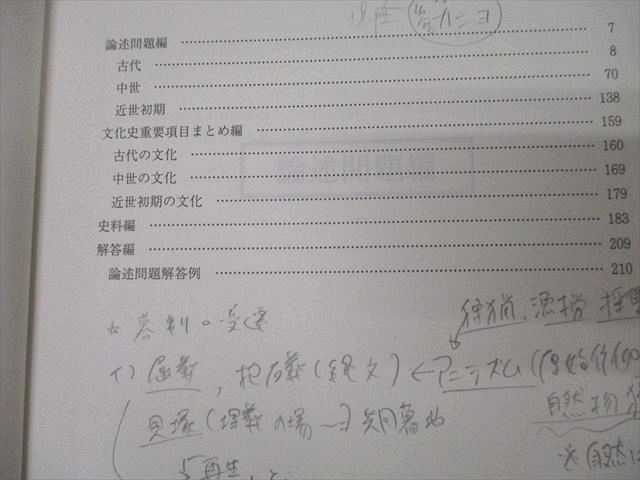 論述問題編 7
古代 8
中世 70
近世初期 138
文化史重要項目まとめ編 159
古代の文化 160
中世の文化 169
近世初期の文化 179
史料編 183
解答編 209
論述問題解答例 210
論述問題編
狩猟、漁撈
墓制の変遷
イ) 屈葬, 抱石葬(縄文) ← アニミズム(
自然物
貝塚(埋葬の場 → 共同墓地
再生
※自然に